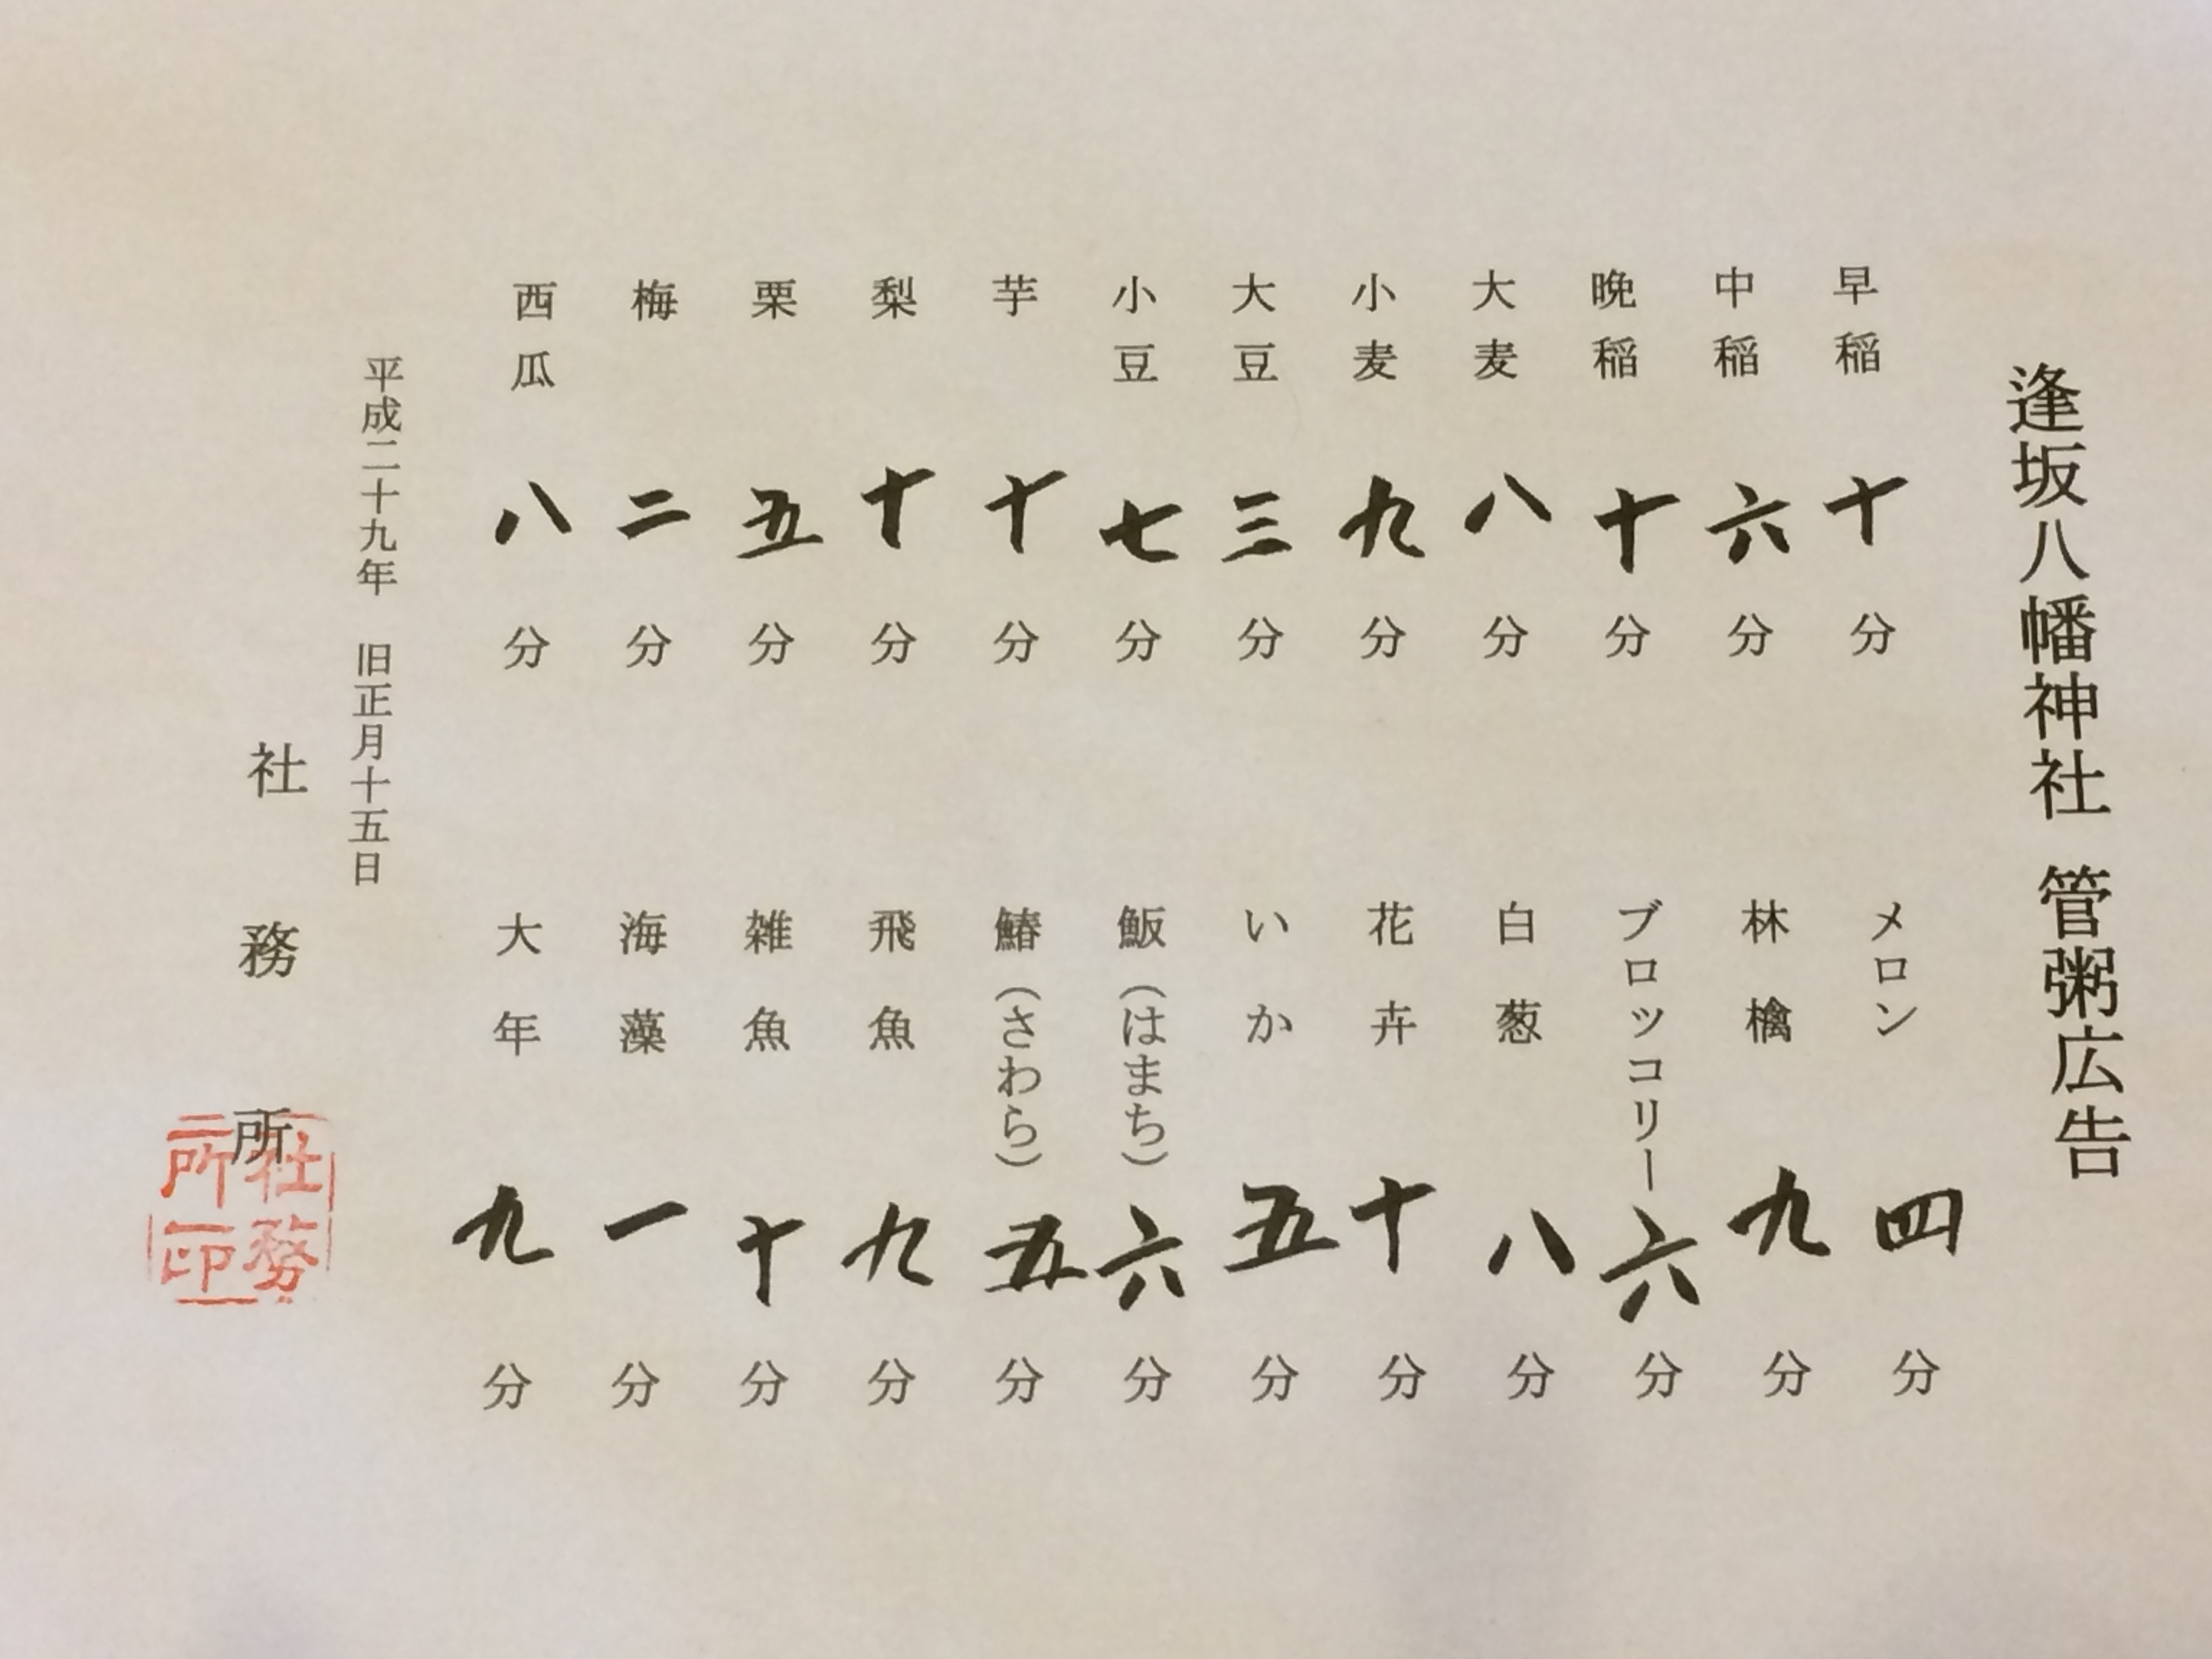 逢坂八幡神社 管粥広告
早稲 十 分
中稲 六 分
晩稲 十 分
大麦 八 分
小麦 九 分
大豆 三 分
小豆 七 分
芋 十 分
梨 十 分
栗 五 分
梅 二 分
西瓜 八 分
メロン 四 分
林檎 九 分
ブロッコリー 六 分
白葱 八 分
花卉 十 分
いか 五 分
魬(はまち) 六 分
鰆(さわら) 五 分
飛魚 九 分
雑魚 十 分
海藻 一 分
大年 九 分
平成二十九年 旧正月十五日
社務所
社務
所印